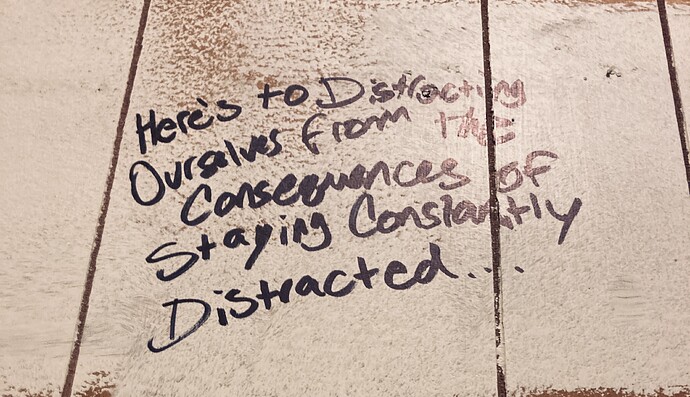 Here's to Distracting
Ourselves from the
Consequences of
Staying Constantly
Distracted....